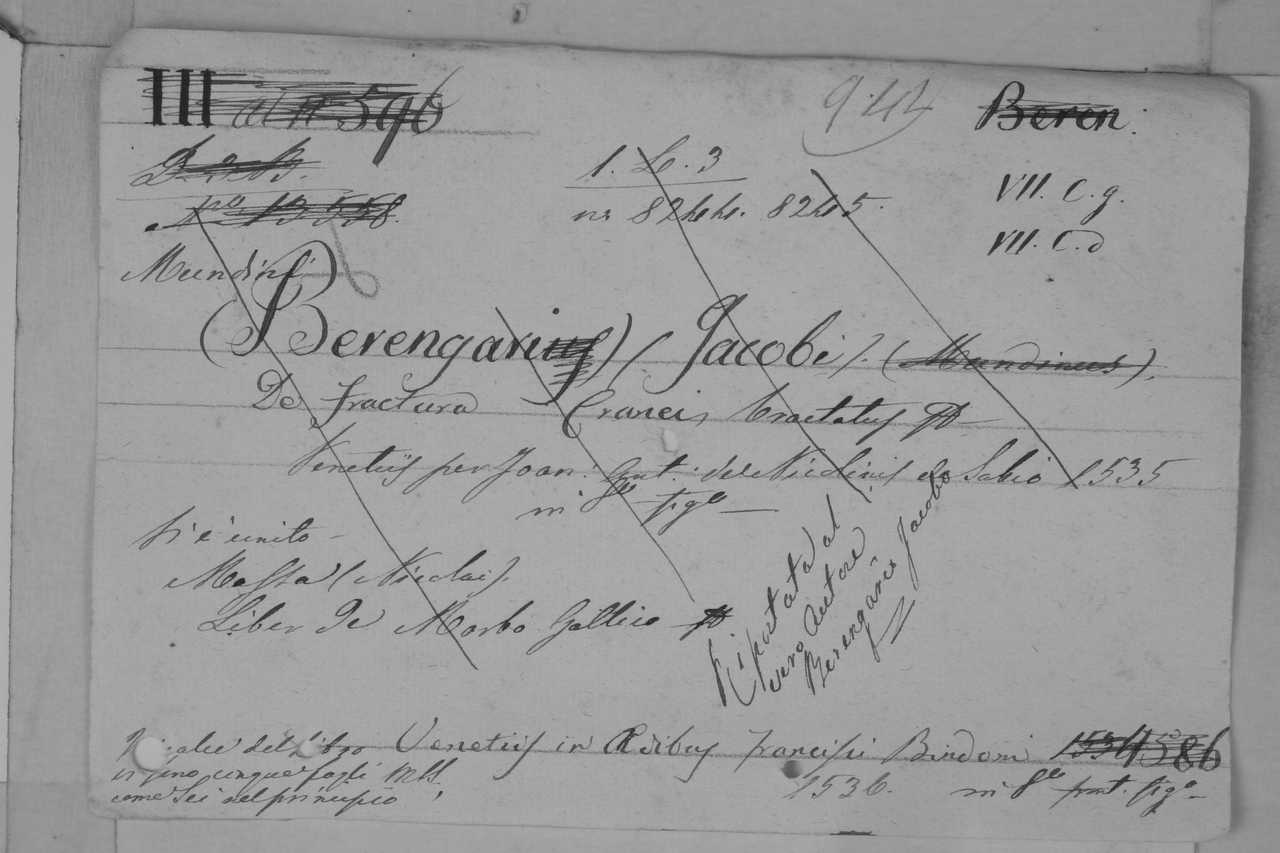 III al n 596
944
Beren.
1. L. 3
nr 8244. 8245.
VII. C. g.
VII. C. d
no 13558
Mundini)
(Berengarius) (Jacobi). (Mundinus).
De fractura Cranei, tractatus
Venetiis per Joan: Ant: de Nicolinis de Sabio 1535
in 8vo figo
Vi è unito
Massa (Nicolai).
Liber De Morbo Gallico
Riportata al
vero Autore:
Berengario Jacobo
del Libro Venetiis in Aedibus Francisci Bindoni
vi sono cinque fogli mss.
come Sei nel principio
1536. in 8vo front. figo
4586